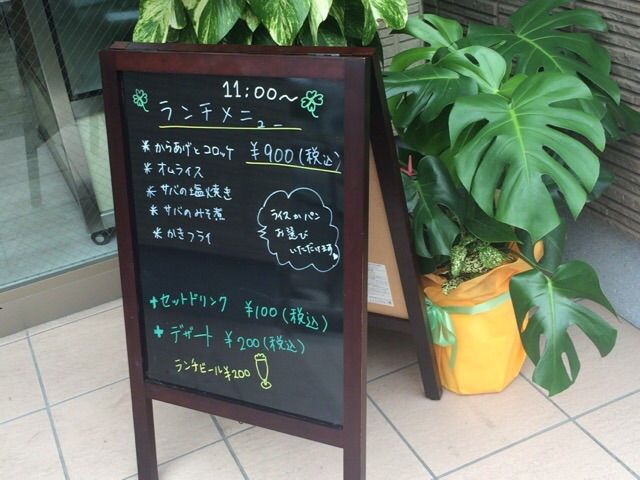 11:00～
ランチメニュー
＊からあげとコロッケ ¥900(税込)
＊オムライス
＊サバの塩焼き
＊サバのみそ煮
＊かきフライ
ライスかパン
お選び
いただけます
+セットドリンク ¥100(税込)
+デザート ¥200(税込)
ランチビール¥200